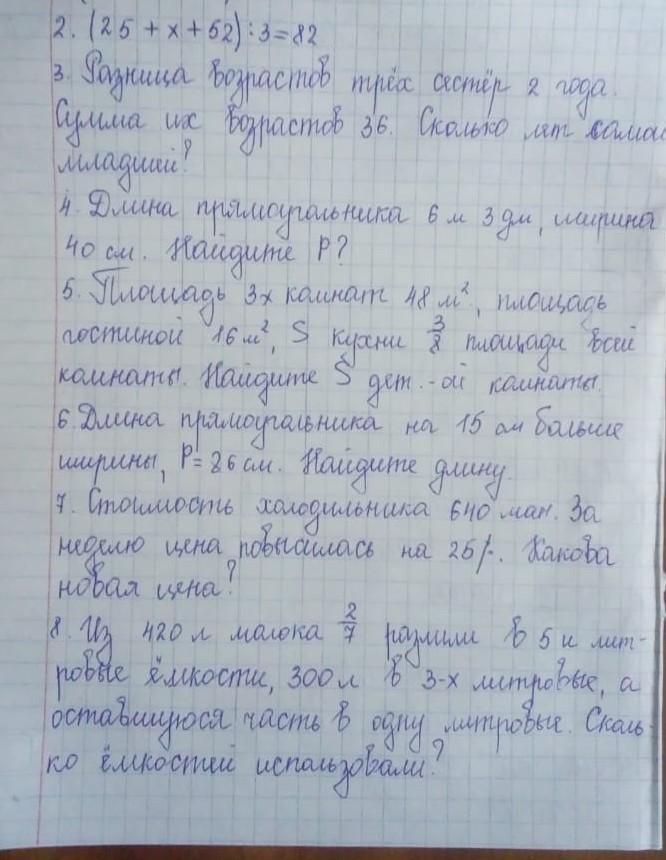 2. (25 + x + 52) : 3 = 82
3. Разница возрастов трёх сестёр 2 года.
Сумма их возрастов 36. Сколько лет самой
младшей?
4. Длина прямоугольника 6 м 3 дм, ширина
40 см. Найдите P?
5. Площадь 3х комнат 48 м², площадь
гостиной 16 м², S кухни 3/8 площади всей
комнаты. Найдите S дет.-ой комнаты.
6. Длина прямоугольника на 15 см больше
ширины, P = 86 см. Найдите длину.
7. Стоимость холодильника 640 ман. За
неделю цена повысилась на 25%. Какова
новая цена?
8. Из 420 л молока 2/7 разлили в 5и лит-
ровые ёмкости, 300 л в 3-х литровые, а
оставшуюся часть в одну литровые. Сколь-
ко ёмкостей использовали?